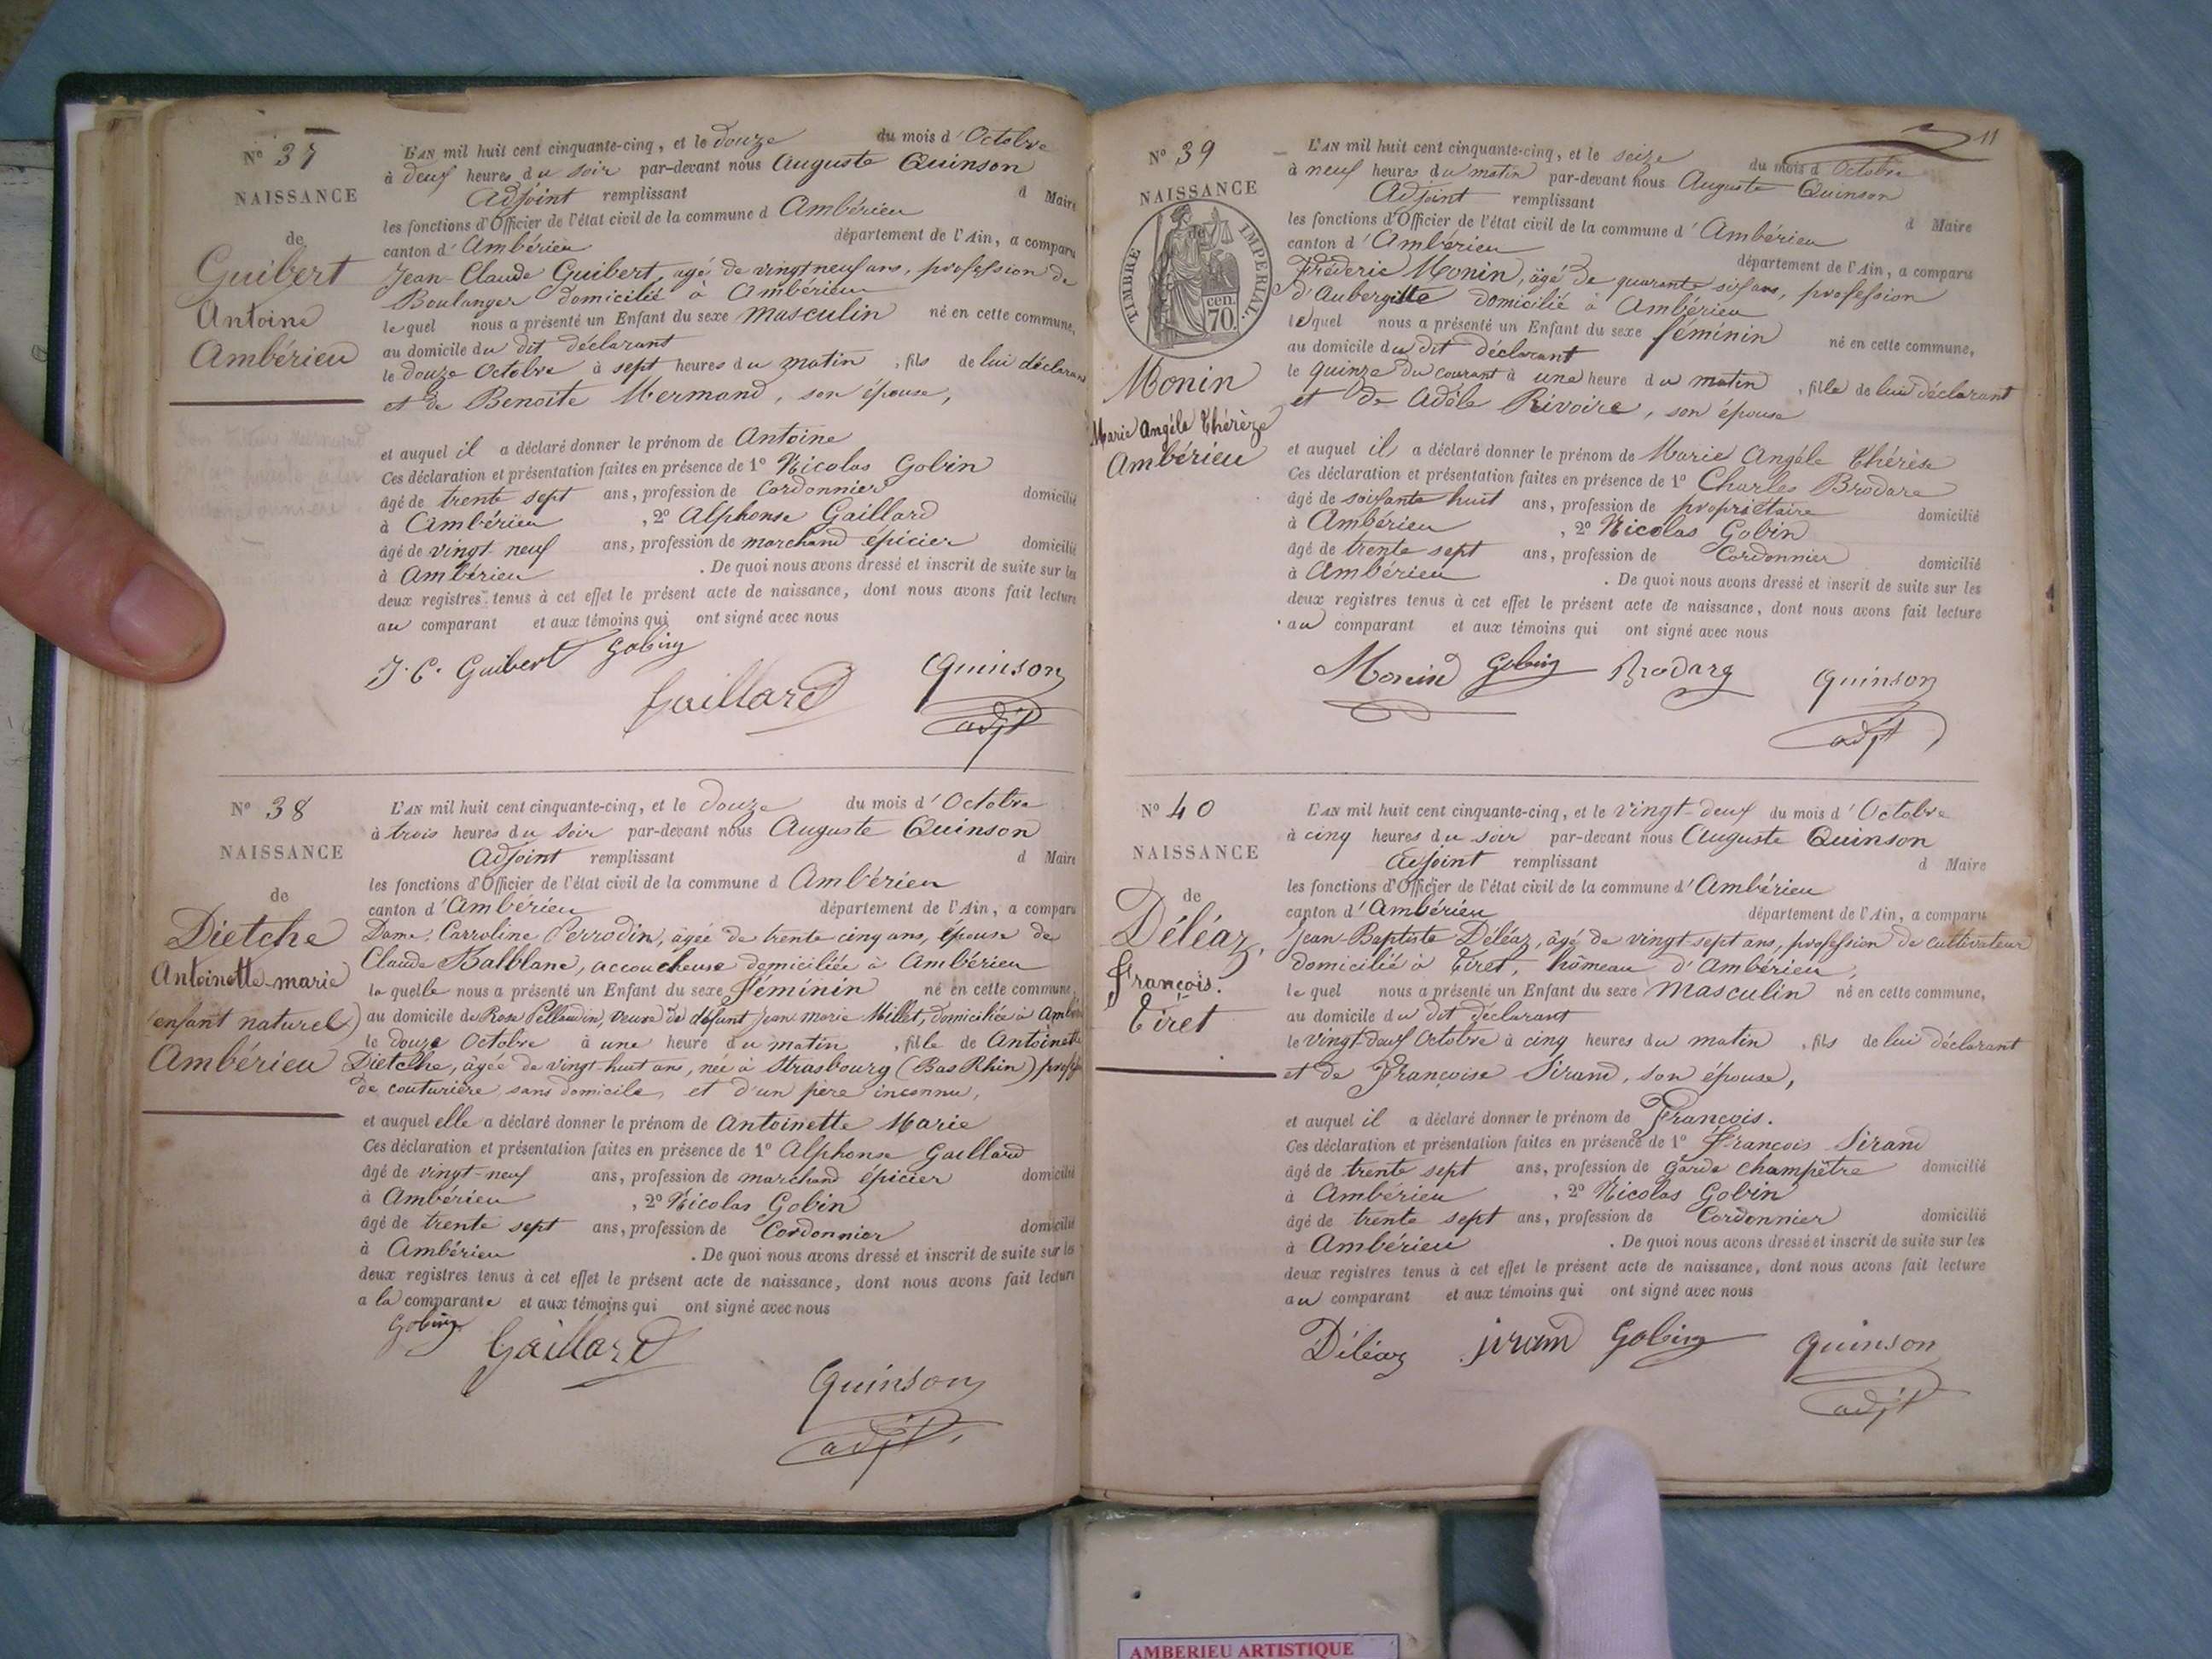 N° 37
NAISSANCE
de
Guibert
Antoine
Ambérieu
L'AN mil huit cent cinquante-cinq, et le douze du mois d'Octobre
à deux heures du soir par-devant nous Auguste Quinson
Adjoint remplissant d Maire
les fonctions d'Officier de l'état civil de la commune d Ambérieu
canton d'Ambérieu département de l'Ain, a comparu
Jean-Claude Guibert, agé de vingt neuf ans, profession de
Boulanger domicilié à Ambérieu
lequel nous a présenté un Enfant du sexe masculin né en cette commune,
au domicile du dit déclarant
le douze Octobre à sept heures du matin, fils de lui déclarant
et de Benoite Mermand, son épouse,
et auquel il a déclaré donner le prénom de Antoine
Ces déclaration et présentation faites en présence de 1° Nicolas Gobin
âgé de trente sept ans, profession de Cordonnier domicilié
à Ambérieu, 2° Alphonse Gaillard
âgé de vingt-neuf ans, profession de marchand épicier domicilié
à Ambérieu. De quoi nous avons dressé et inscrit de suite sur les
deux registres tenus à cet effet le présent acte de naissance, dont nous avons fait lecture
au comparant et aux témoins qui ont signé avec nous
J. C. Guibert Gobin
Gaillard Quinson
adjt
N° 38
NAISSANCE
de
Dietche
Antoinette-marie
(enfant naturel)
Ambérieu
L'AN mil huit cent cinquante-cinq, et le douze du mois d'Octobre
à trois heures du soir par-devant nous Auguste Quinson
Adjoint remplissant d Maire
les fonctions d'Officier de l'état civil de la commune d Ambérieu
canton d'Ambérieu département de l'Ain, a comparu
Dame Carroline Perrodin, agée de trente cinq ans, épouse de
Claude Balblanc, accoucheuse domiciliée à Ambérieu
laquelle nous a présenté un Enfant du sexe féminin né en cette commune,
au domicile de Rose Pellaudin, veuve de défunt Jean marie Millet, domiciliée à Ambérieu
le douze Octobre à une heure du matin, fille de Antoinette
Dietche, âgée de vingt-huit ans, née à Strasbourg (Bas Rhin)
de couturière, sans domicile, et d'un père inconnu,
et auquel elle a déclaré donner le prénom de Antoinette Marie
Ces déclaration et présentation faites en présence de 1° Alphonse Gaillard
âgé de vingt-neuf ans, profession de marchand épicier domicilié
à Ambérieu, 2° Nicolas Gobin
âgé de trente sept ans, profession de Cordonnier domicilié
à Ambérieu. De quoi nous avons dressé et inscrit de suite sur les
deux registres tenus à cet effet le présent acte de naissance, dont nous avons fait lecture
a la comparante et aux témoins qui ont signé avec nous
Gobin Gaillard
Quinson
adjt
11
N° 39
NAISSANCE
de
TIMBRE IMPERIAL.
70. cen.
Monin
Marie Angéle Thérèze
Ambérieu
L'AN mil huit cent cinquante-cinq, et le seize du mois d'Octobre
à neuf heures du matin par-devant nous Auguste Quinson
Adjoint remplissant d Maire
les fonctions d'Officier de l'état civil de la commune d'Ambérieu
canton d'Ambérieu département de l'Ain, a comparu
Fréderic Monin, âgé de quarante six ans, profession
d'Aubergiste domicilié à Ambérieu
lequel nous a présenté un Enfant du sexe féminin né en cette commune,
au domicile du dit déclarant
le quinze du courant à une heure du matin, fille de lui déclarant
et de Adèle Rivoire, son épouse
et auquel il a déclaré donner le prénom de Marie Angéle Thérèse
Ces déclaration et présentation faites en présence de 1° Charles Brodare
âgé de soixante huit ans, profession de propriétaire domicilié
à Ambérieu, 2° Nicolas Gobin
âgé de trente sept ans, profession de Cordonnier domicilié
à Ambérieu. De quoi nous avons dressé et inscrit de suite sur les
deux registres tenus à cet effet le présent acte de naissance, dont nous avons fait lecture
au comparant et aux témoins qui ont signé avec nous
Monin Gobin Quinson
adjt
N° 40
NAISSANCE
de
Déléaz,
François.
Tiret
L'AN mil huit cent cinquante-cinq, et le vingt-deux du mois d'Octobre
à cinq heures du soir par-devant nous Auguste Quinson
Adjoint remplissant d Maire
les fonctions d'Officier de l'état civil de la commune d'Ambérieu
canton d'Ambérieu département de l'Ain, a comparu
Jean-Baptiste Déléaz, âgé de vingt-sept ans, profession de cultivateur
domicilié à Tiret, hâmeau d'Ambérieu,
lequel nous a présenté un Enfant du sexe masculin né en cette commune,
au domicile du dit déclarant
le vingt-deux Octobre à cinq heures du matin, fils de lui déclarant
et de Françoise Sirand, son épouse,
et auquel il a déclaré donner le prénom de François.
Ces déclaration et présentation faites en présence de 1° François Sirand
âgé de trente sept ans, profession de Garde champêtre domicilié
à Ambérieu, 2° Nicolas Gobin
âgé de trente sept ans, profession de Cordonnier domicilié
à Ambérieu. De quoi nous avons dressé et inscrit de suite sur les
deux registres tenus à cet effet le présent acte de naissance, dont nous avons fait lecture
au comparant et aux témoins qui ont signé avec nous
Déléaz sirand Gobin Quinson
adjt
AMBERIEU ARTISTIQUE